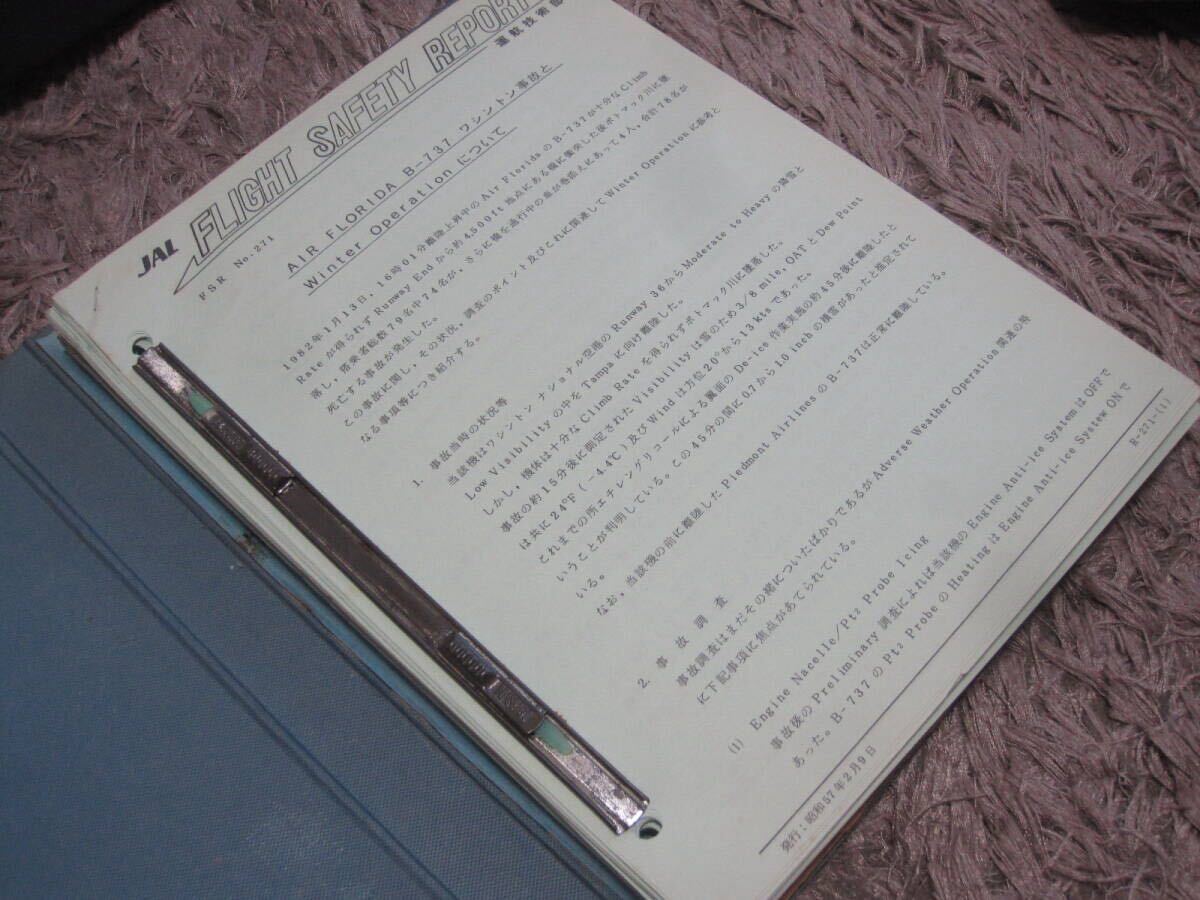 JAL FLIGHT SAFETY REPORT
運航技術部
FSR No.271
AIR FLORIDA B-737 ワシントン事故と
Winter Operation について
1982年1月13日,16時01分離陸上昇中のAir FloridaのB-737が十分なClimb
Rateが得られずRunway Endから約4500ft地点にある橋に衝突した後ポトマック川に墜
落し,搭乗者総数79名中74名が,さらに橋を通行中の車が巻添えにあって4人,合計78名が
死亡する事故が発生した。
この事故に関し,その状況,調査のポイント及びこれに関連してWinter Operationに参考と
なる事項等につき紹介する。
1. 事故当時の状況等
当該機はワシントン ナショナル空港のRunway 36からModerate to Heavyの降雪と
Low Visibilityの中をTampaに向け離陸した。
しかし,機体は十分なClimb Rateを得られずポトマック川に墜落した。
事故の約15分後に測定されたVisibilityは雪のため3/8 mile,OATとDew Point
は共に24°F(-4.4℃)及びWindは方位20°から13 ktsであった。
これまでの所エチレングリコールによる翼面のDe-ice作業実施の約45分後に離陸したと
いうことが判明している。この45分の間に0.7から1.0 inchの積雪があったと推定されて
いる。
なお,当該機の前に離陸したPiedmont AirlinesのB-737は正常に離陸している。
2. 事故調査
事故調査はまだその緒についたばかりであるがAdverse Weather Operation関連の時
に下記事項に焦点があてられている。
(1) Engine Nacelle/Pt2 Probe Icing
事故後のPreliminary 調査によれば当該機のEngine Anti-ice SystemはOFFで
あった。B-737のPt2 ProbeのHeatingはEngine Anti-ice System ONで
発行:昭和57年2月9日
R-271-(1)